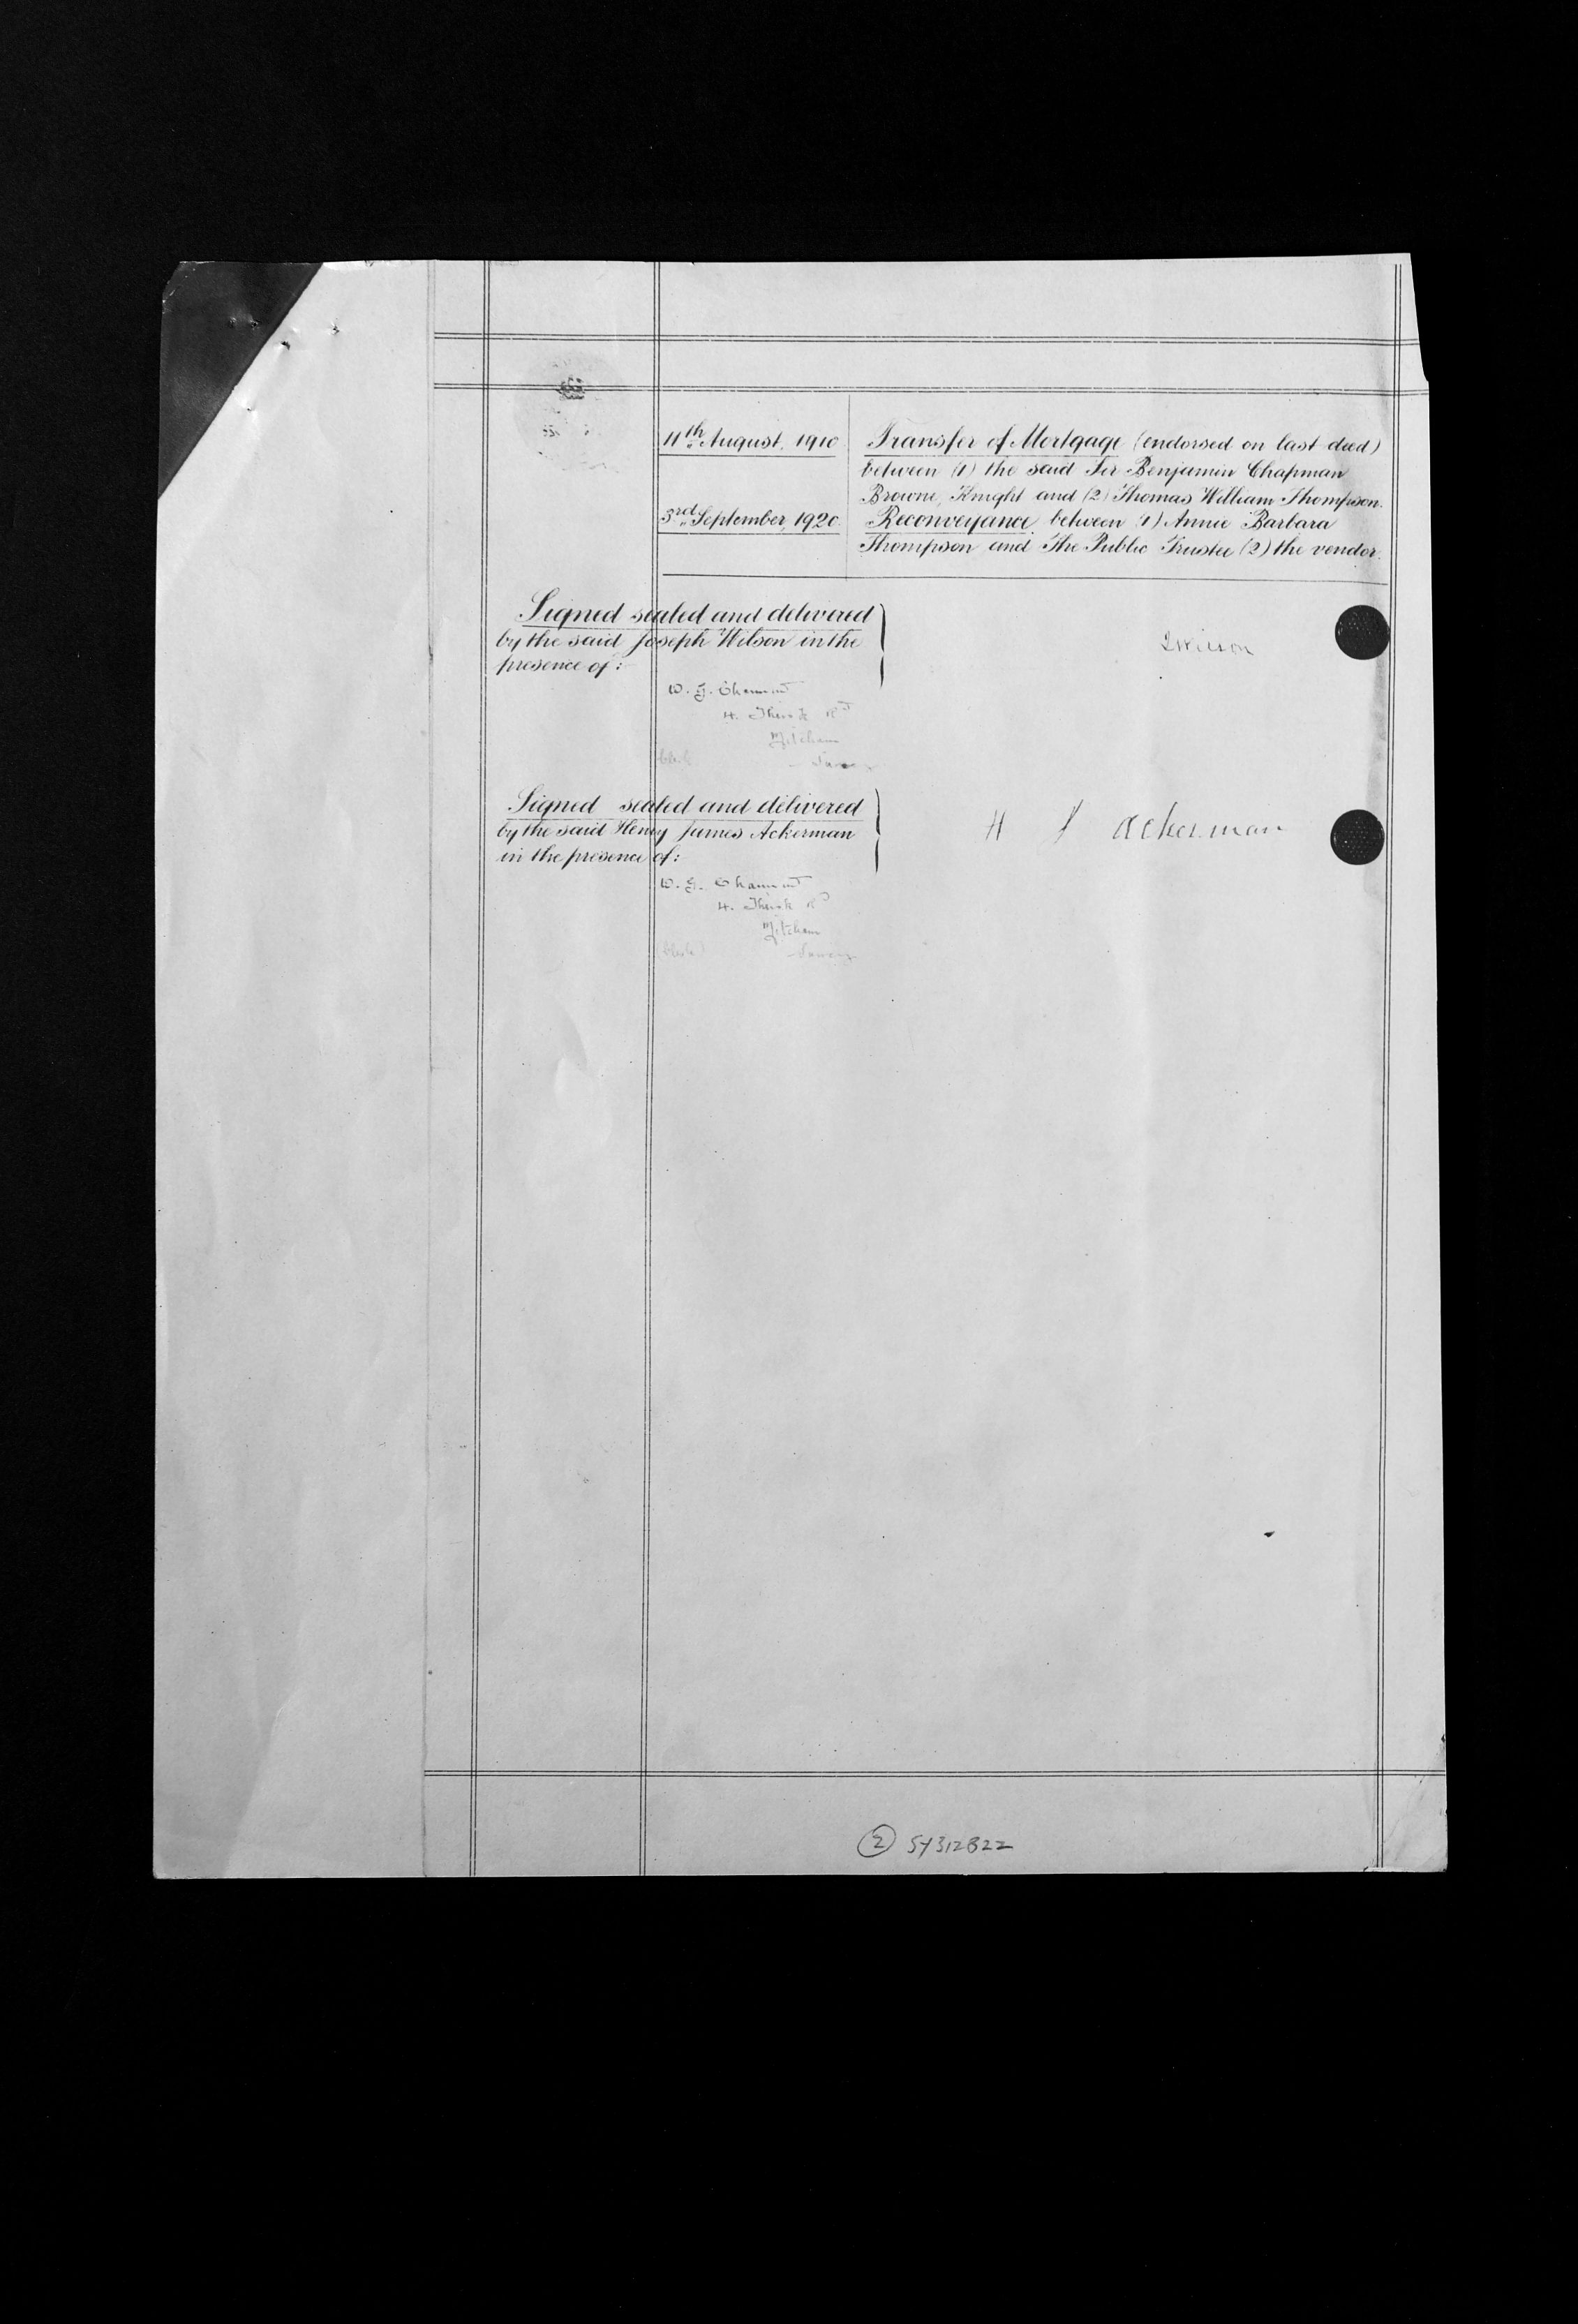 11th August, 1910 Transfer of Mortgage (endorsed on last deed)
between (1) the said Sir Benjamin Chapman
Browne, Knight and (2) Thomas William Thompson.
3rd September, 1920. Reconveyance between (1) Annie Barbara
Thompson and The Public Trustee (2) the vendor.
Signed sealed and delivered
by the said Joseph Wilson in the
presence of:
J Wilson
W. G.
4. Thirsk Rd
Mitcham
Surrey
Signed sealed and delivered
by the said Henry James Ackerman
in the presence of:
H J Ackerman
W. G.
4. Thirsk Rd
Mitcham
(Clerk) Surrey
2 SY312B22